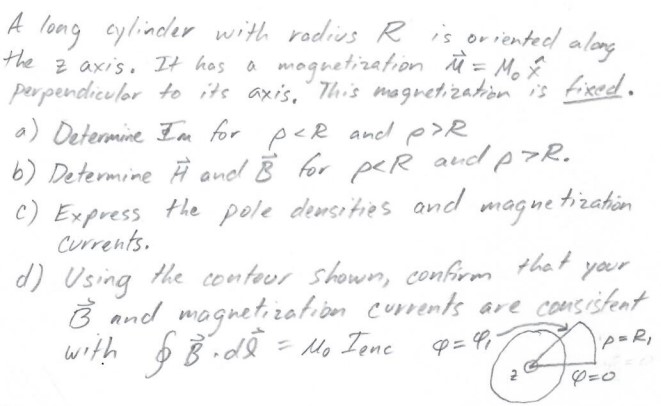 A long cylinder with radius R is oriented along
the z axis. It has a magnetization M⃗ = M₀ x̂
perpendicular to its axis. This magnetization is fixed.
a) Determine Φm for ρ<R and ρ>R
b) Determine H⃗ and B⃗ for ρ<R and ρ>R.
c) Express the pole densities and magnetization
currents.
d) Using the contour shown, confirm that your
B⃗ and magnetization currents are consistent
with ∮ B⃗ · dl⃗ = μ₀ Ienc φ=φ₁ ρ=R₁
z φ=0